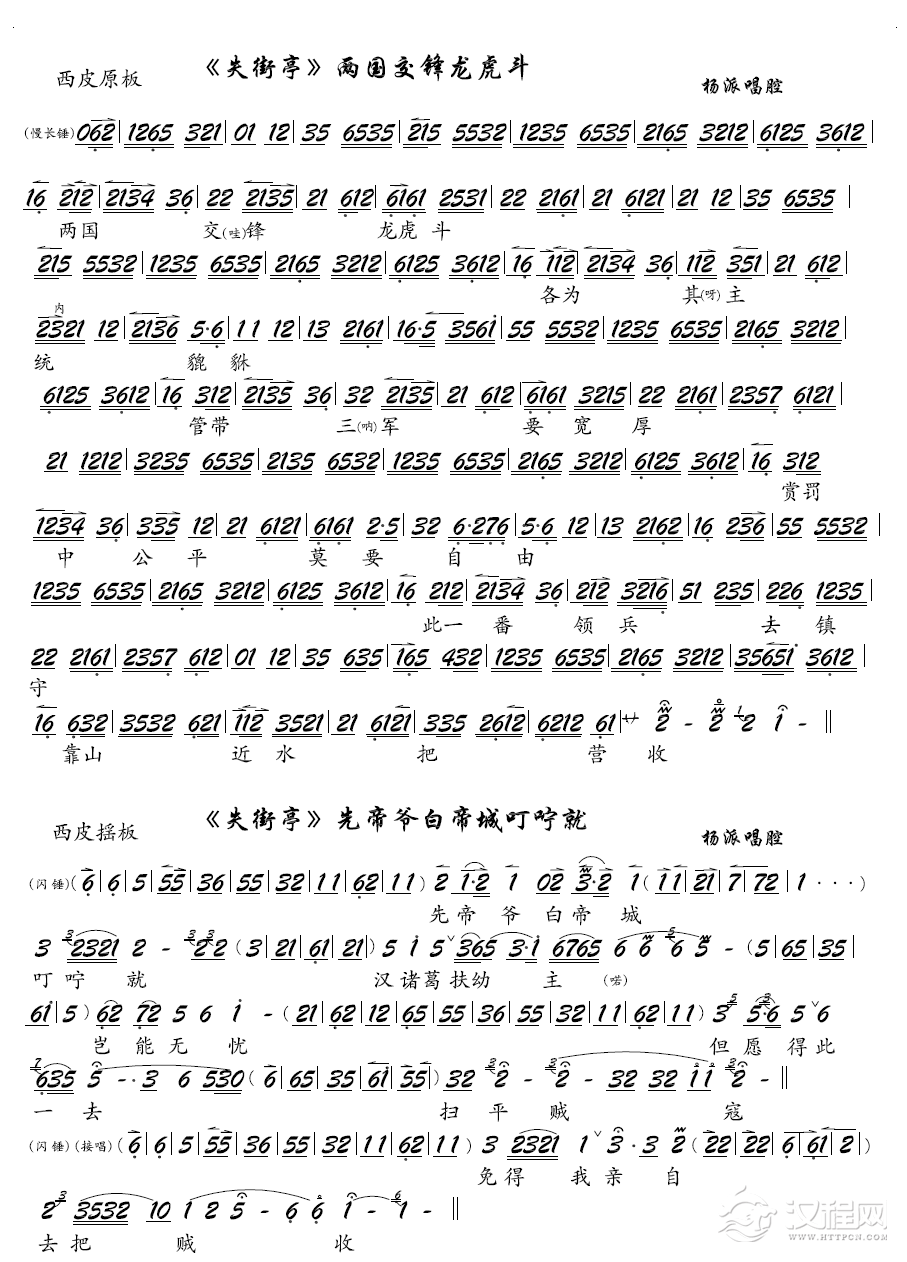 《失街亭》两国交锋龙虎斗
西皮原板
杨派唱腔
(慢长锤) 062|1265 321|01 12|35 6535|215 5532|1235 6535|2165 3212|6125 3612|
16 212|2134 36|22 2135|21 612|6161 2531|22 2161|21 6121|21 12|35 6535|
两国 交(哇)锋 龙虎 斗
215 5532|1235 6535|2165 3212|6125 3612|16 112|2134 36|112 351|21 612|
各为 其(呀)主
内
2321 12|2136 5·6|11 12|13 2161|16·5 3561|55 5532|1235 6535|2165 3212|
统 貔 貅
6125 3612|16 312|2135 36|32 2135|21 612|6161 3215|22 2161|2357 6121|
管带 三(呐)军 要 宽 厚
21 1212|3235 6535|2135 6532|1235 6535|2165 3212|6125 3612|16 312
赏罚
1234 36|335 12|21 6121|6161 2·5|32 6·276|5·6 12|13 2162|16 236|55 5532|
中 公 平 莫 要 自 由
1235 6535|2165 3212|6125 3612|16 212|2134 36|212 3216|51 235|226 1235|
此一 番 领 兵 去 镇
22 2161|2357 612|01 12|35 635|165 432|1235 6535|2165 3212|35651 3612|
守
16 632|3532 621|112 3521|21 6121|335 2612|6212 61|廾 2 - 2 1 2 1 -‖
靠山 近 水 把 营 收
《失街亭》先帝爷白帝城叮咛就
西皮摇板
杨派唱腔
(闪锤)(6|6|5|55|36|55|32|11|62|11) 2 1·2 1 02 3·2 1(11|21|7|72|1···)
先 帝 爷 白 帝 城
3 3 2321 2 - 3 2 3 2(3|21|61|21) 5 1 5ˇ365 3·1 6765 6 6 5 6 5 -(5|65|35|
叮 咛 就 汉 诸 葛 扶 幼 主 (喏)
61|5) 62 72 5 6 1 -(21|62|12|65|55|36|55|32|11|62|11) 3 5 3 5·6 5ˇ6
岂 能 无 忧 但 愿 得 此
7 635 5 -·3 6 530(6|65|35|61|55) 32 2 - 2 - 32 32 11 3 2 -‖
一 去 扫 平 贼 寇
(闪锤)(接唱)(6|6|5|55|36|55|32|11|62|11) 3 2321 1ˇ3·3 2(22|22|6|61|2|)
免 得 我 亲 自
2 3 3532 10 1 2 5 - 6 6 1 - 6 1 -‖
去 把 贼 收
汉程网
WWW.HTTPCN.COM